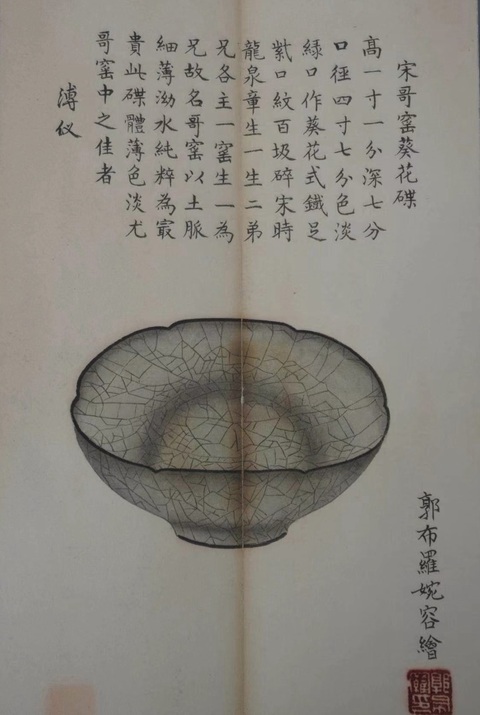 宋哥窑葵花碟
高一寸一分深七分
口徑四寸七分色淡
緑口作葵花式鐵足
紫口紋百圾碎宋時
龍泉章生一生二弟
兄各主一窑生一為
兄故名哥窑以土脈
細薄泑水純粹為㝡
貴此碟體薄色淡尤
哥窑中之佳者
溥仪
郭布羅婉容繪